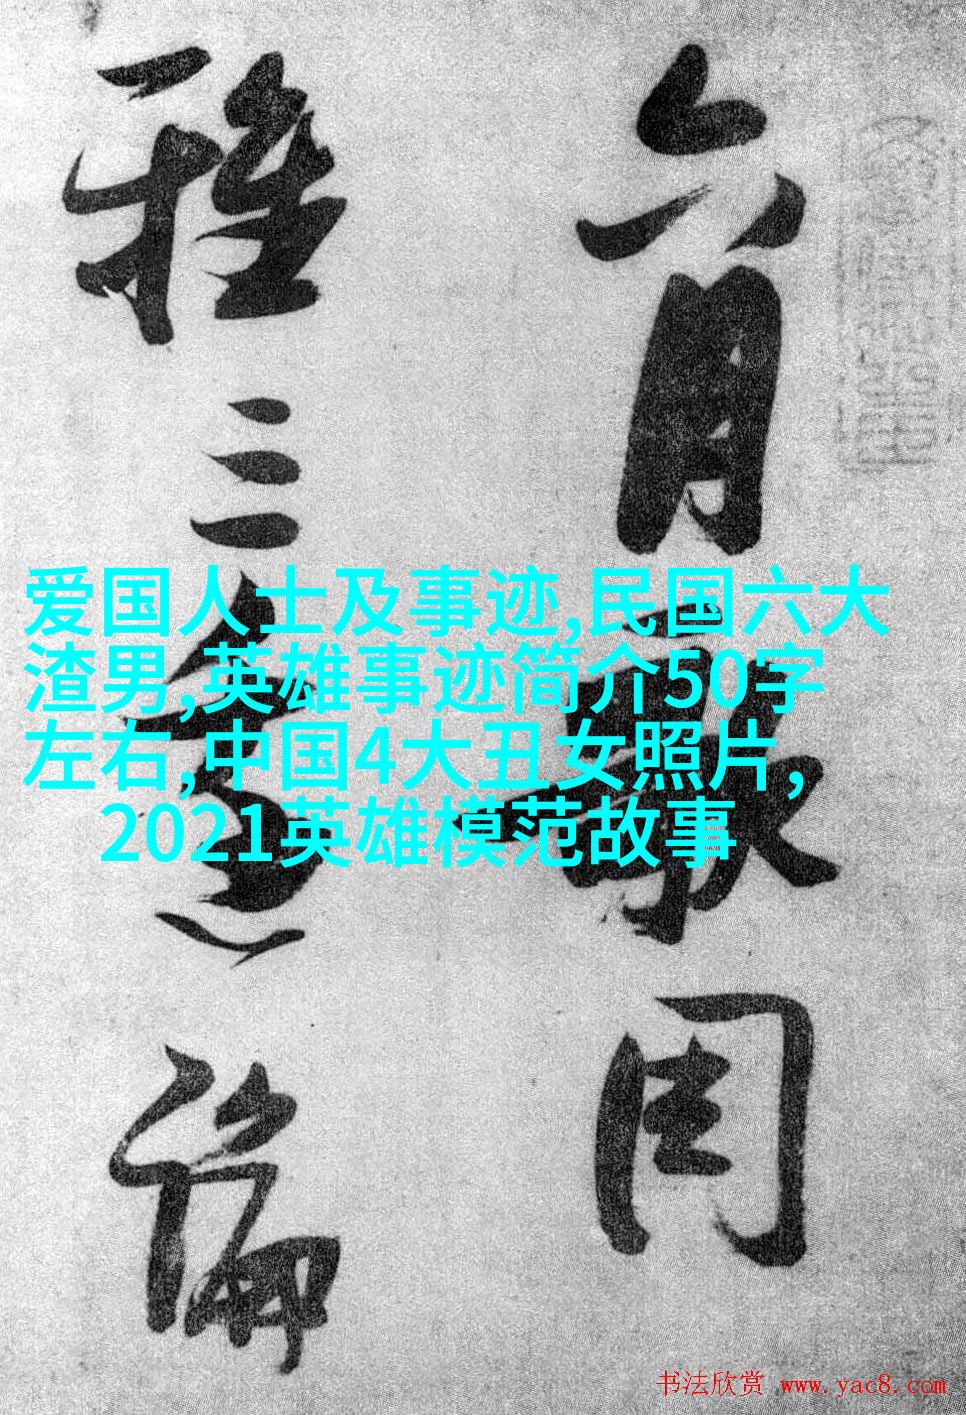 六月 周
雅三 論
爱国人士及事迹,民国六大
渣男,英雄事迹简介50字
左右,中国4大丑女照片,
2021英雄模范故事
书法欣赏 www.yac8.com